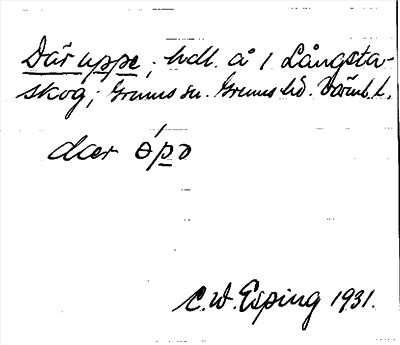 Där uppe; hdl. å 1 Långsta-
skog; Grums sn. Grums hd. Värml. l.
dær ópo
C. W. Esping 1931.